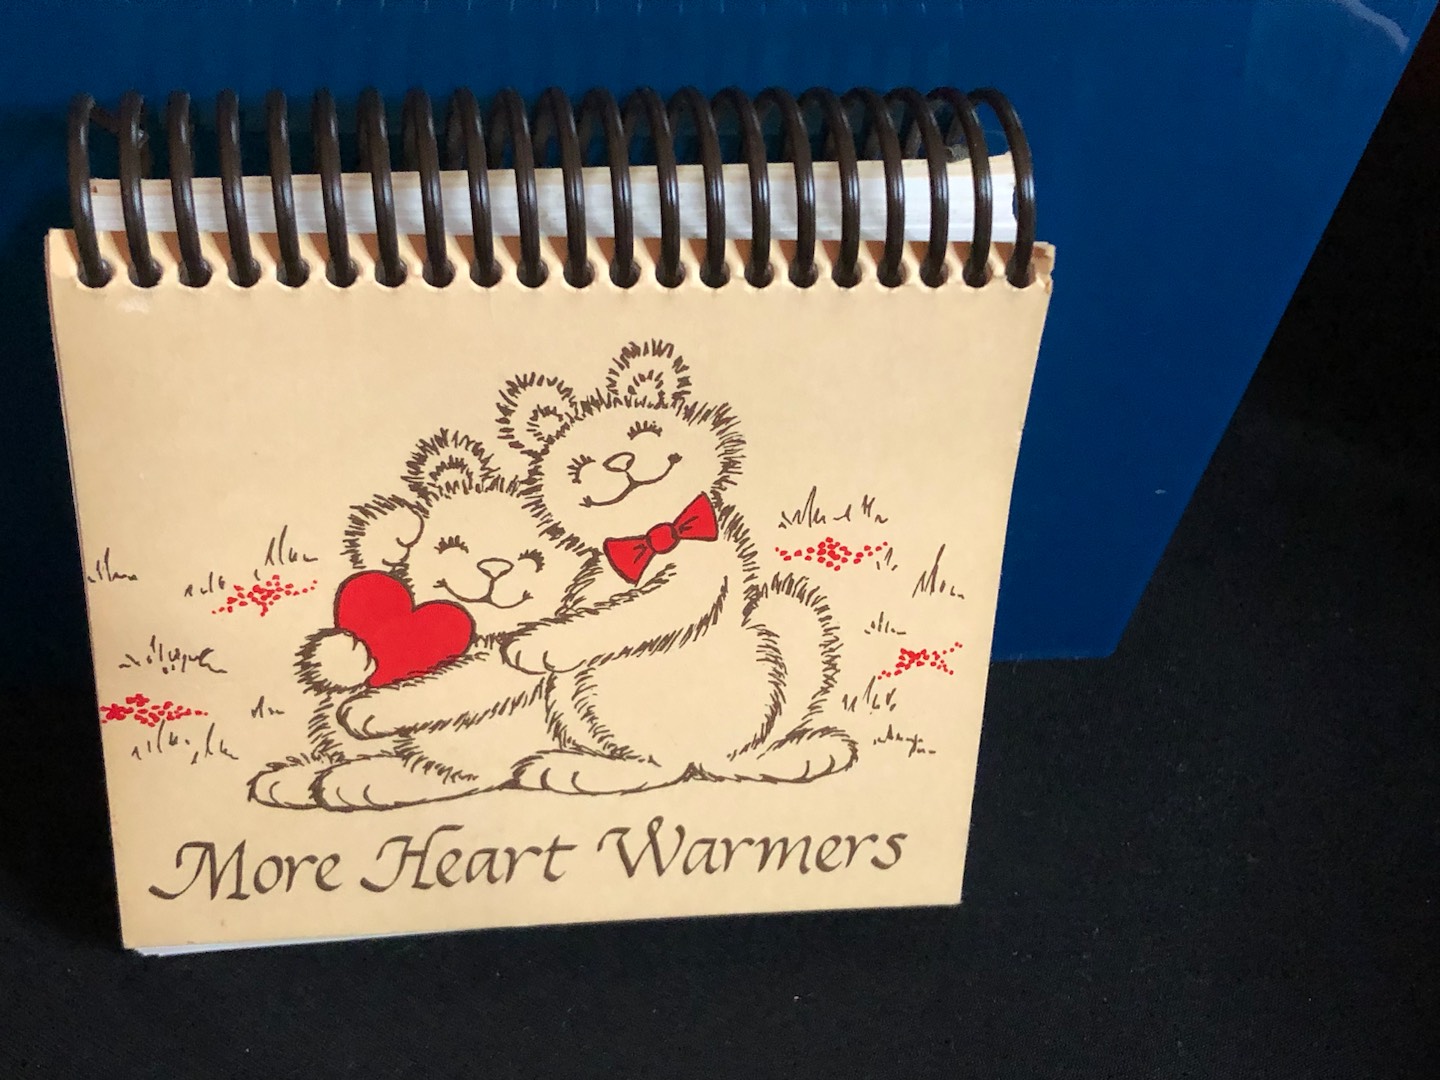 More Heart Warmers